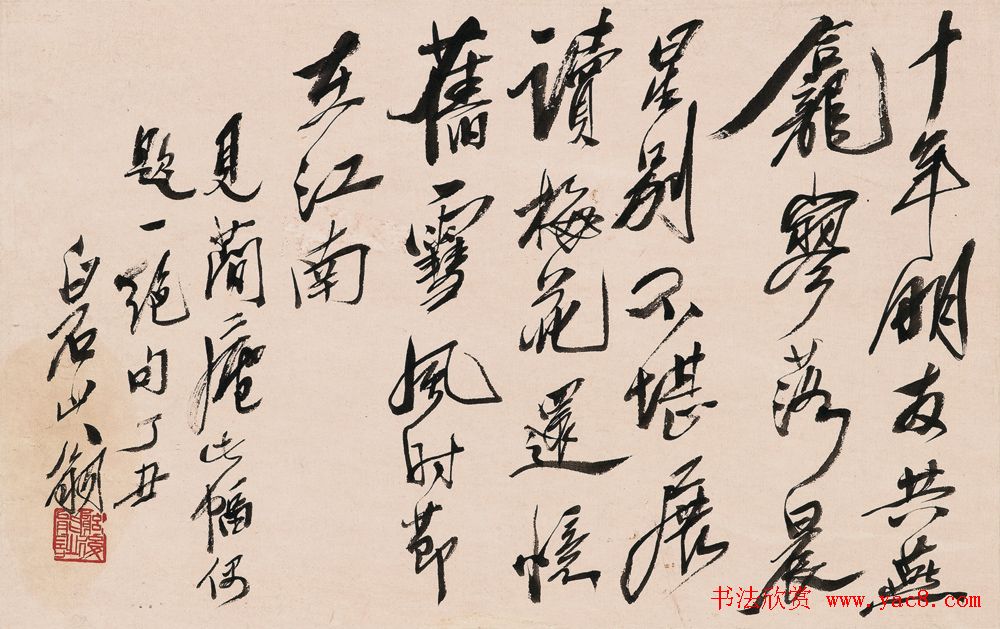 十年朋友共燕
龕寥落晨
星別不堪展
讀梅花還憶
舊雪風時節
在江南
見簡庵此幅偶
題一絕句丁丑
白石山翁
书法欣赏 www.yac8.com